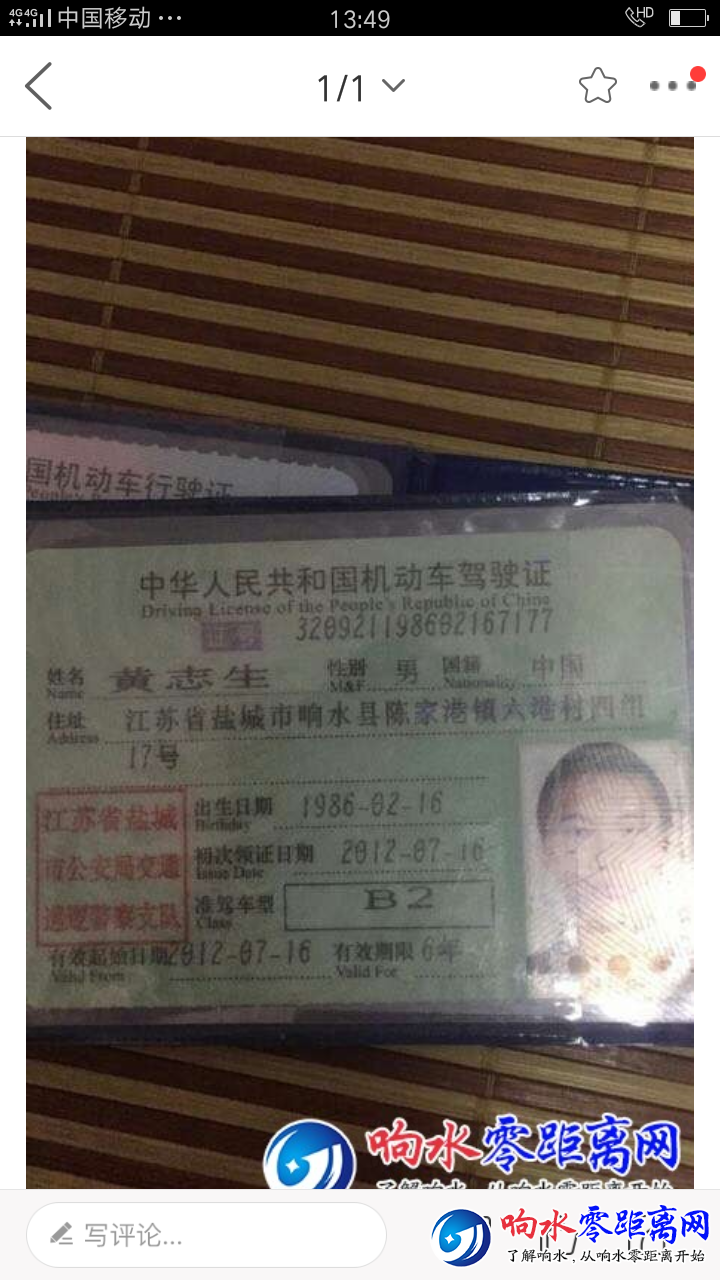 4G 4G 中国移动 ··· 13:49 HD
1/1
国机动车行驶证
中华人民共和国机动车驾驶证
Driving License of the People's Republic of China
证号 320921198602167177
姓名 黄志生 性别 男 国籍 中国
Name M&F Nationality
住址 江苏省盐城市响水县陈家港镇六港村四组
Address
17号
江苏省盐城
市公安局交通
巡逻警察支队
出生日期 1986-02-16
Birthday
初次领证日期 2012-07-16
Issue Date
准驾车型 B2
Class
有效起始日期 2012-07-16 有效期限 6年
Valid From Valid For
响水零距离网
了解响水,从响水零距离开始
写评论...
响水零距离网
了解响水,从响水零距离开始